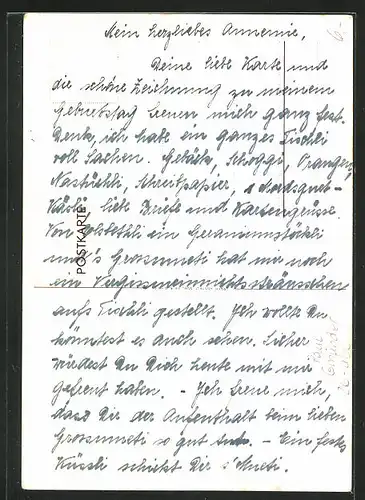 Mein herzliebes Annemie,
Deine liebe Karte und
die schöne Zeichnung zu meinem
Geburtstag freuen mich ganz fest.
Denk, ich habe ein ganzes Tischli
voll Sachen. Gebäck, Schoggi, Orangen,
Nastüchli, Schreibpapier,
liebe Briefe und Kartengrüsse.
Von ein Geraniumstöckli
und 's Grossmueti hat mir noch
ein Vergissmeinnichtssträusschen
aufs Tischli gestellt. Ich wollte Du
könntest es auch sehen. Sicher
würdest Du Dich heute mit mir
gefreut haben. - Ich freue mich,
dass Dir der Aufenthalt beim lieben
Grossmueti so gut tut. - Ein festes
Küssli schickt Dir s'Mueti.
POSTKARTE
6.-